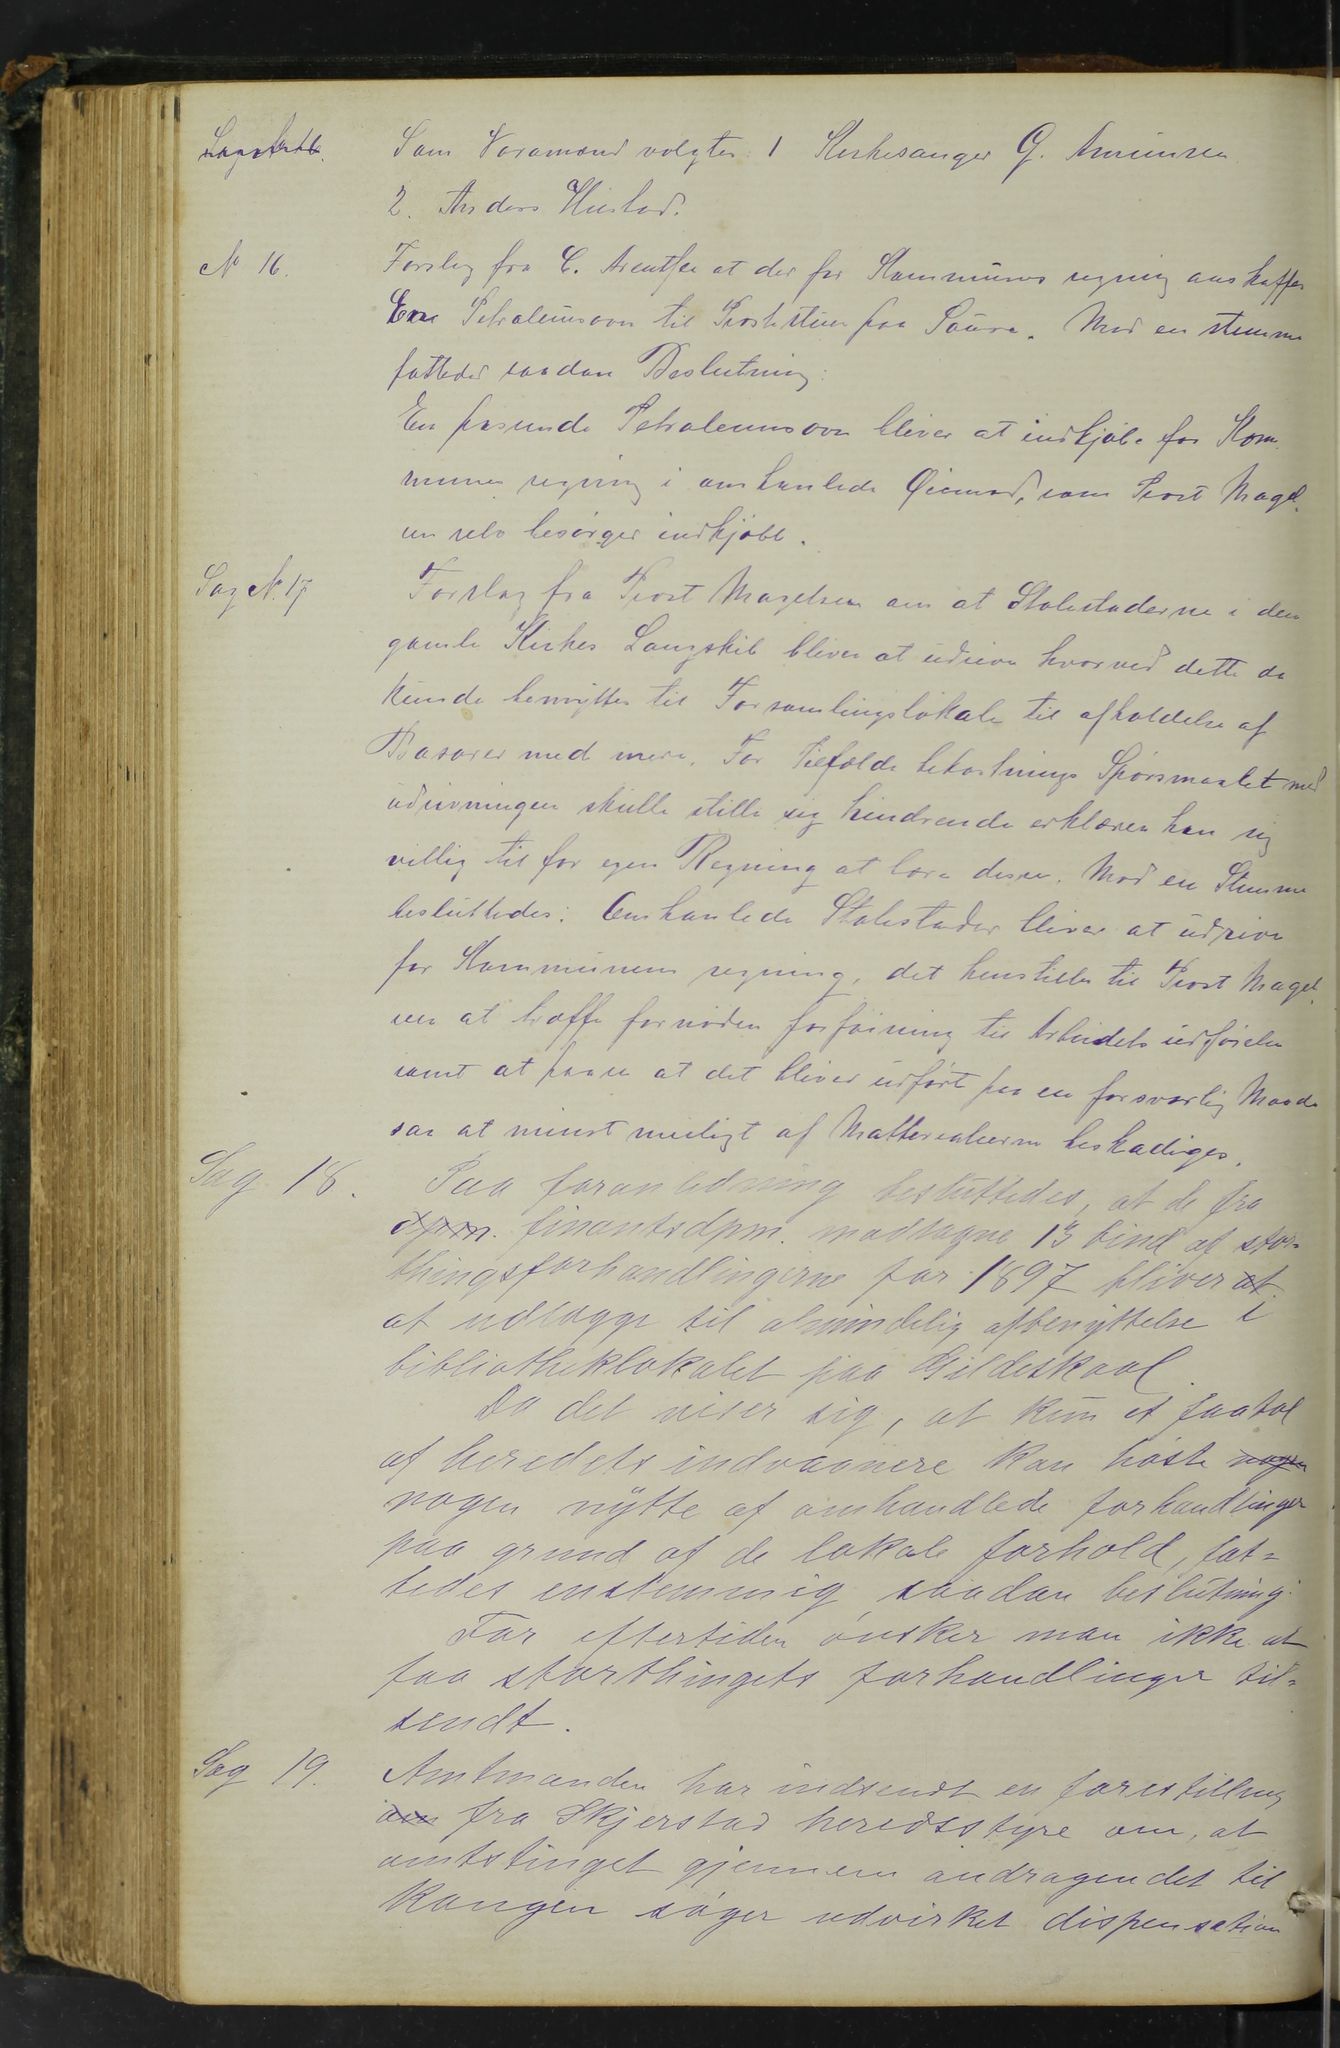 Som Varamænd valgtes: 1 Kirkesanger G. Arnuinsen
2. Anders Hustad.
N 16. Forslag fra C. Arentsen at der for Kommunens regning anskaffes
En Petroleumsovn til Prostestuen paa Saura. Mod en stemme
fattedes saadan Beslutning:
En passende Petroleumsovn bliver at indkjøbe for Kom
munens regning i omhanlede Øiemed, som Prost Magel
sen selv besørger indkjøbt.
Sag N. 17 Forslag fra Prost Magelsen om at Stolestaderne i den
gamle Kirkes Langskib bliver at udrive hvorved dette da
kunde benyttes til Forsamlingslokale til afholdelse af
Basarer med mere. For Tilfælde bekostnings Spørsmaalet med
udrivningen skulle stille sig hindrende erklærer han sig
villig til for egen Regning at lave desse. Mod en Stemme
besluttedes: Omhanlede Stolestader bliver at udrive
for Kommunens regning, det henstilles til Prost Magel
sen at træffe fornøden forføining til Arbeidets udførelse
samt at paase at det bliver udført paa en forsvarlig Maade
saa at minst muligt af Matterialierne beskadiges.
Sag 18. Paa foranledning besluttedes, at de fra
dpm. finantsdpm. modtagne 13 bind af stor=
thingsforhandlingerne for 1897 bliver at
at udlægge til almindelig afbenyttelse i
bibliotheklokalet paa Gildeskaal.
Da det viser sig, at kun et faatal
af heredets indvaanere kan høste nogen
nogen nytte af omhandlede forhandlinger
paa grund af de lokale forhold, fat=
tedes enstemmig saadan beslutning:
For eftertiden ønsker man ikke at
faa storthingets forhandlinger til=
sendt.
Sag 19. Amtmanden har indsendt en forestilling
om fra Skjerstad heredsstyre om, at
amtstinget gjennem andragendet til
Kongen søger udvirket dispensation